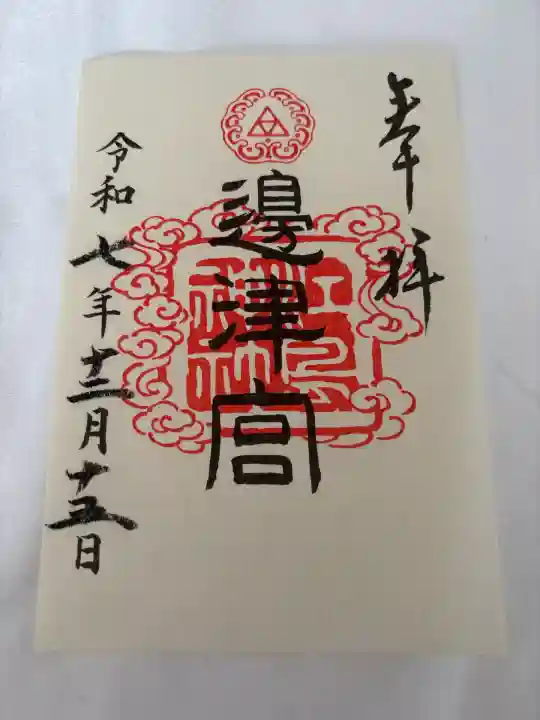 奉拝
邊津宮
令和七年十二月十五日